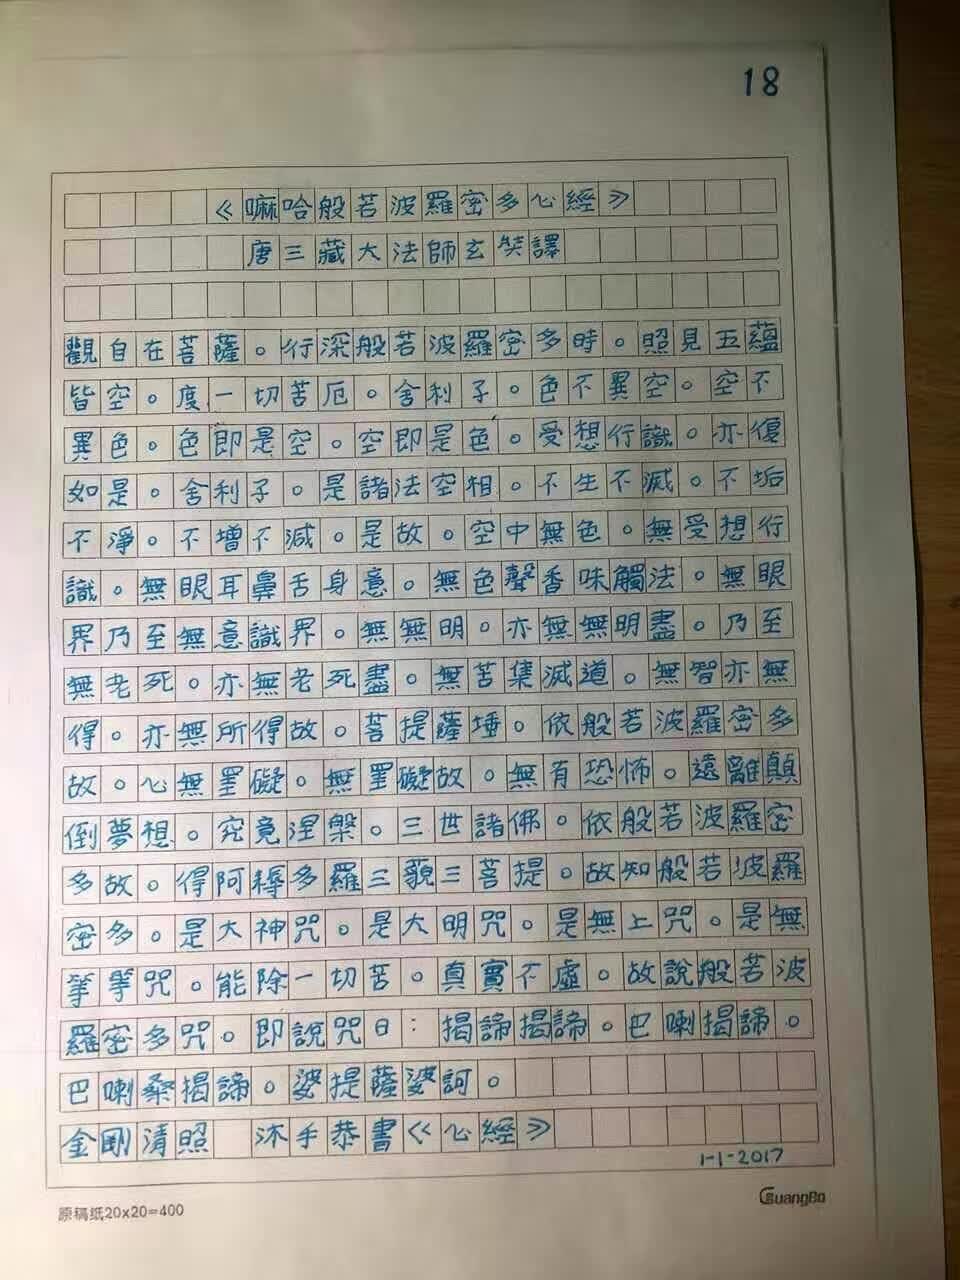 18
《嘛哈般若波羅密多心經》
唐三藏大法師玄奘譯
觀自在菩薩。行深般若波羅密多時。照見五蘊
皆空。度一切苦厄。舍利子。色不異空。空不
異色。色即是空。空即是色。受想行識。亦復
如是。舍利子。是諸法空相。不生不滅。不垢
不淨。不增不減。是故。空中無色。無受想行
識。無眼耳鼻舌身意。無色聲香味觸法。無眼
界乃至無意識界。無無明。亦無無明盡。乃至
無老死。亦無老死盡。無苦集滅道。無智亦無
得。亦無所得故。菩提薩埵。依般若波羅密多
故。心無罣礙。無罣礙故。無有恐怖。遠離顛
倒夢想。究竟涅槃。三世諸佛。依般若波羅密
多故。得阿耨多羅三藐三菩提。故知般若波羅
密多。是大神咒。是大明咒。是無上咒。是無
等等咒。能除一切苦。真實不虛。故說般若波
羅密多咒。即說咒曰：揭諦揭諦。巴喇揭諦。
巴喇桑揭諦。婆提薩婆訶。
金剛清照 沐手恭書《心經》
1-1-2017
原稿纸20x20=400
GuangBo